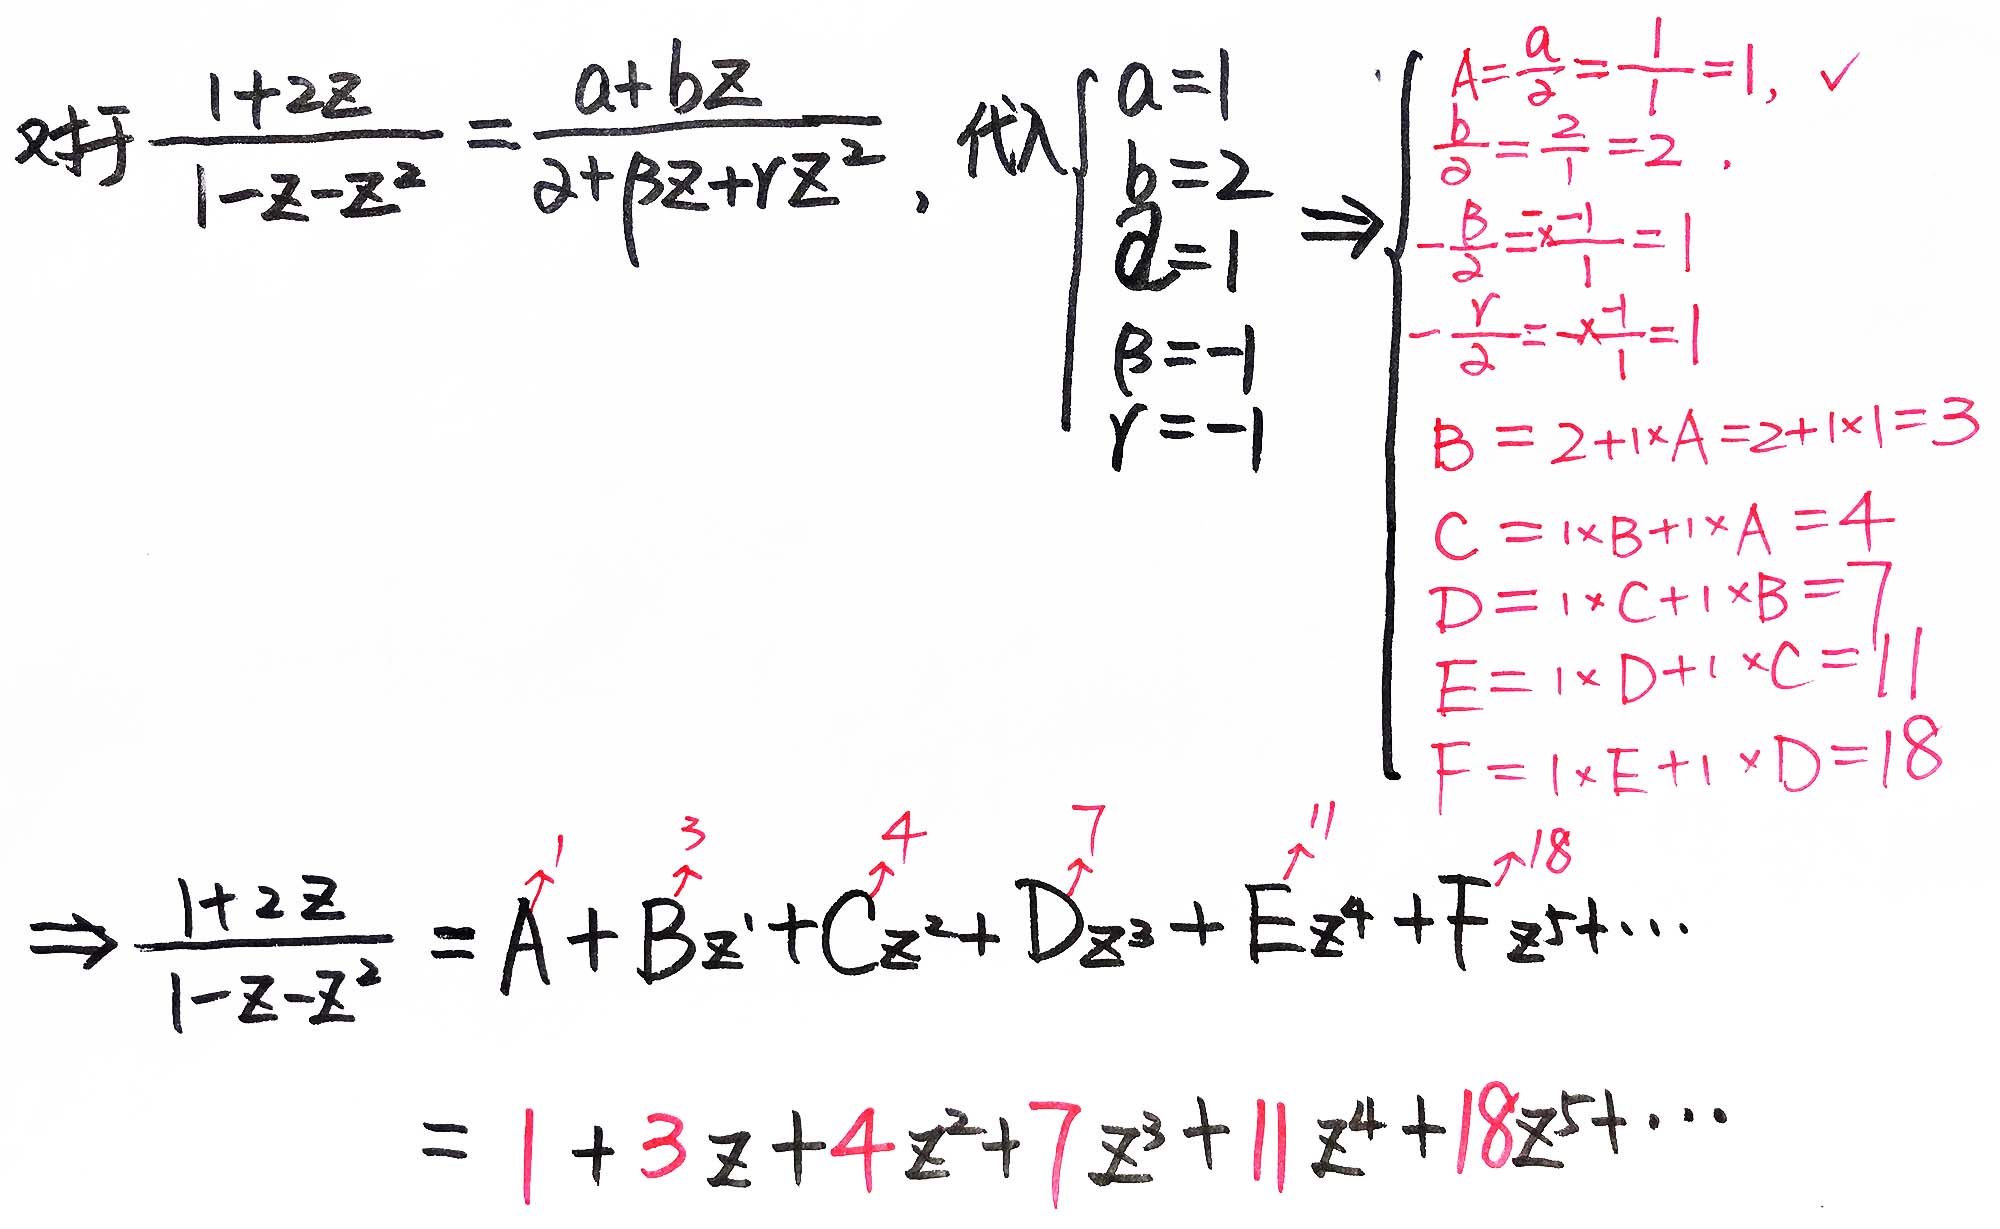 对于 (1+2z)/(1-z-z²) = (a+bz)/(α+βz+γz²), 代入
a=1
b=2
α=1
β=-1
γ=-1
⇒
A=a/α=1/1=1, ✓
b/α=2/1=2.
-β/α=-×-1/1=1
-γ/α=-×-1/1=1
B=2+1×A=2+1×1=3
C=1×B+1×A=4
D=1×C+1×B=7
E=1×D+1×C=11
F=1×E+1×D=18
1 3 4 7 11 18
⇒ (1+2z)/(1-z-z²) = A+Bz¹+Cz²+Dz³+Ez⁴+Fz⁵+⋯
=1+3z+4z²+7z³+11z⁴+18z⁵+⋯